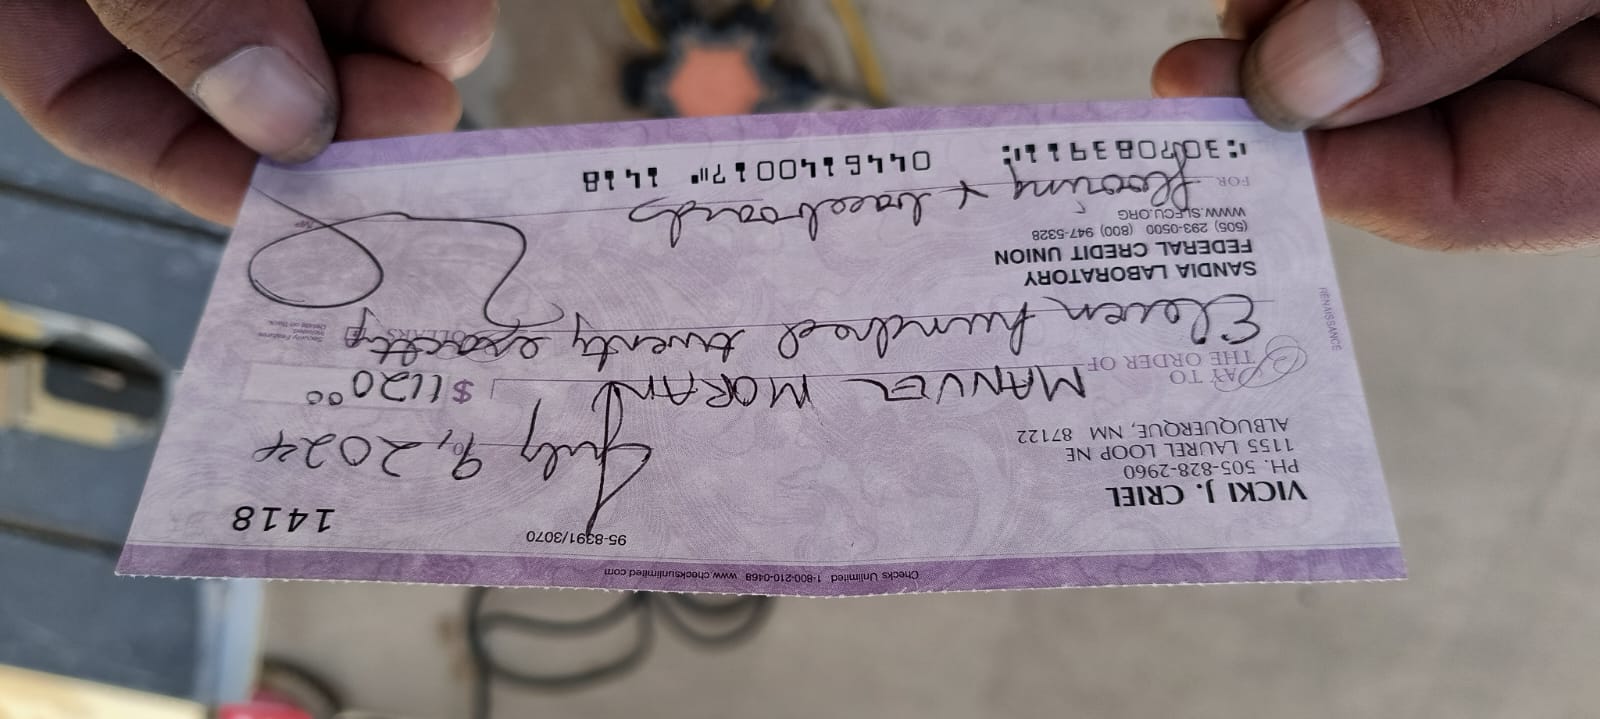 Checks Unlimited 1-800-210-0468 www.checksunlimited.com
VICKI J. CRIEL
PH. 505-828-2960
1155 LAUREL LOOP NE
ALBUQUERQUE, NM 87122
95-8391/3070
1418
July 9, 2024
PAY TO THE ORDER OF MANUEL MORAN $ 1120 00
Eleven hundred twenty exactly DOLLARS
Security Features Included. Details on Back.
RENAISSANCE
SANDIA LABORATORY
FEDERAL CREDIT UNION
(505) 293-0500 (800) 947-5328
WWW.SLFCU.ORG
FOR flooring + baseboards
MP
⑆307083911⑆ 0446140017⑈ 1418